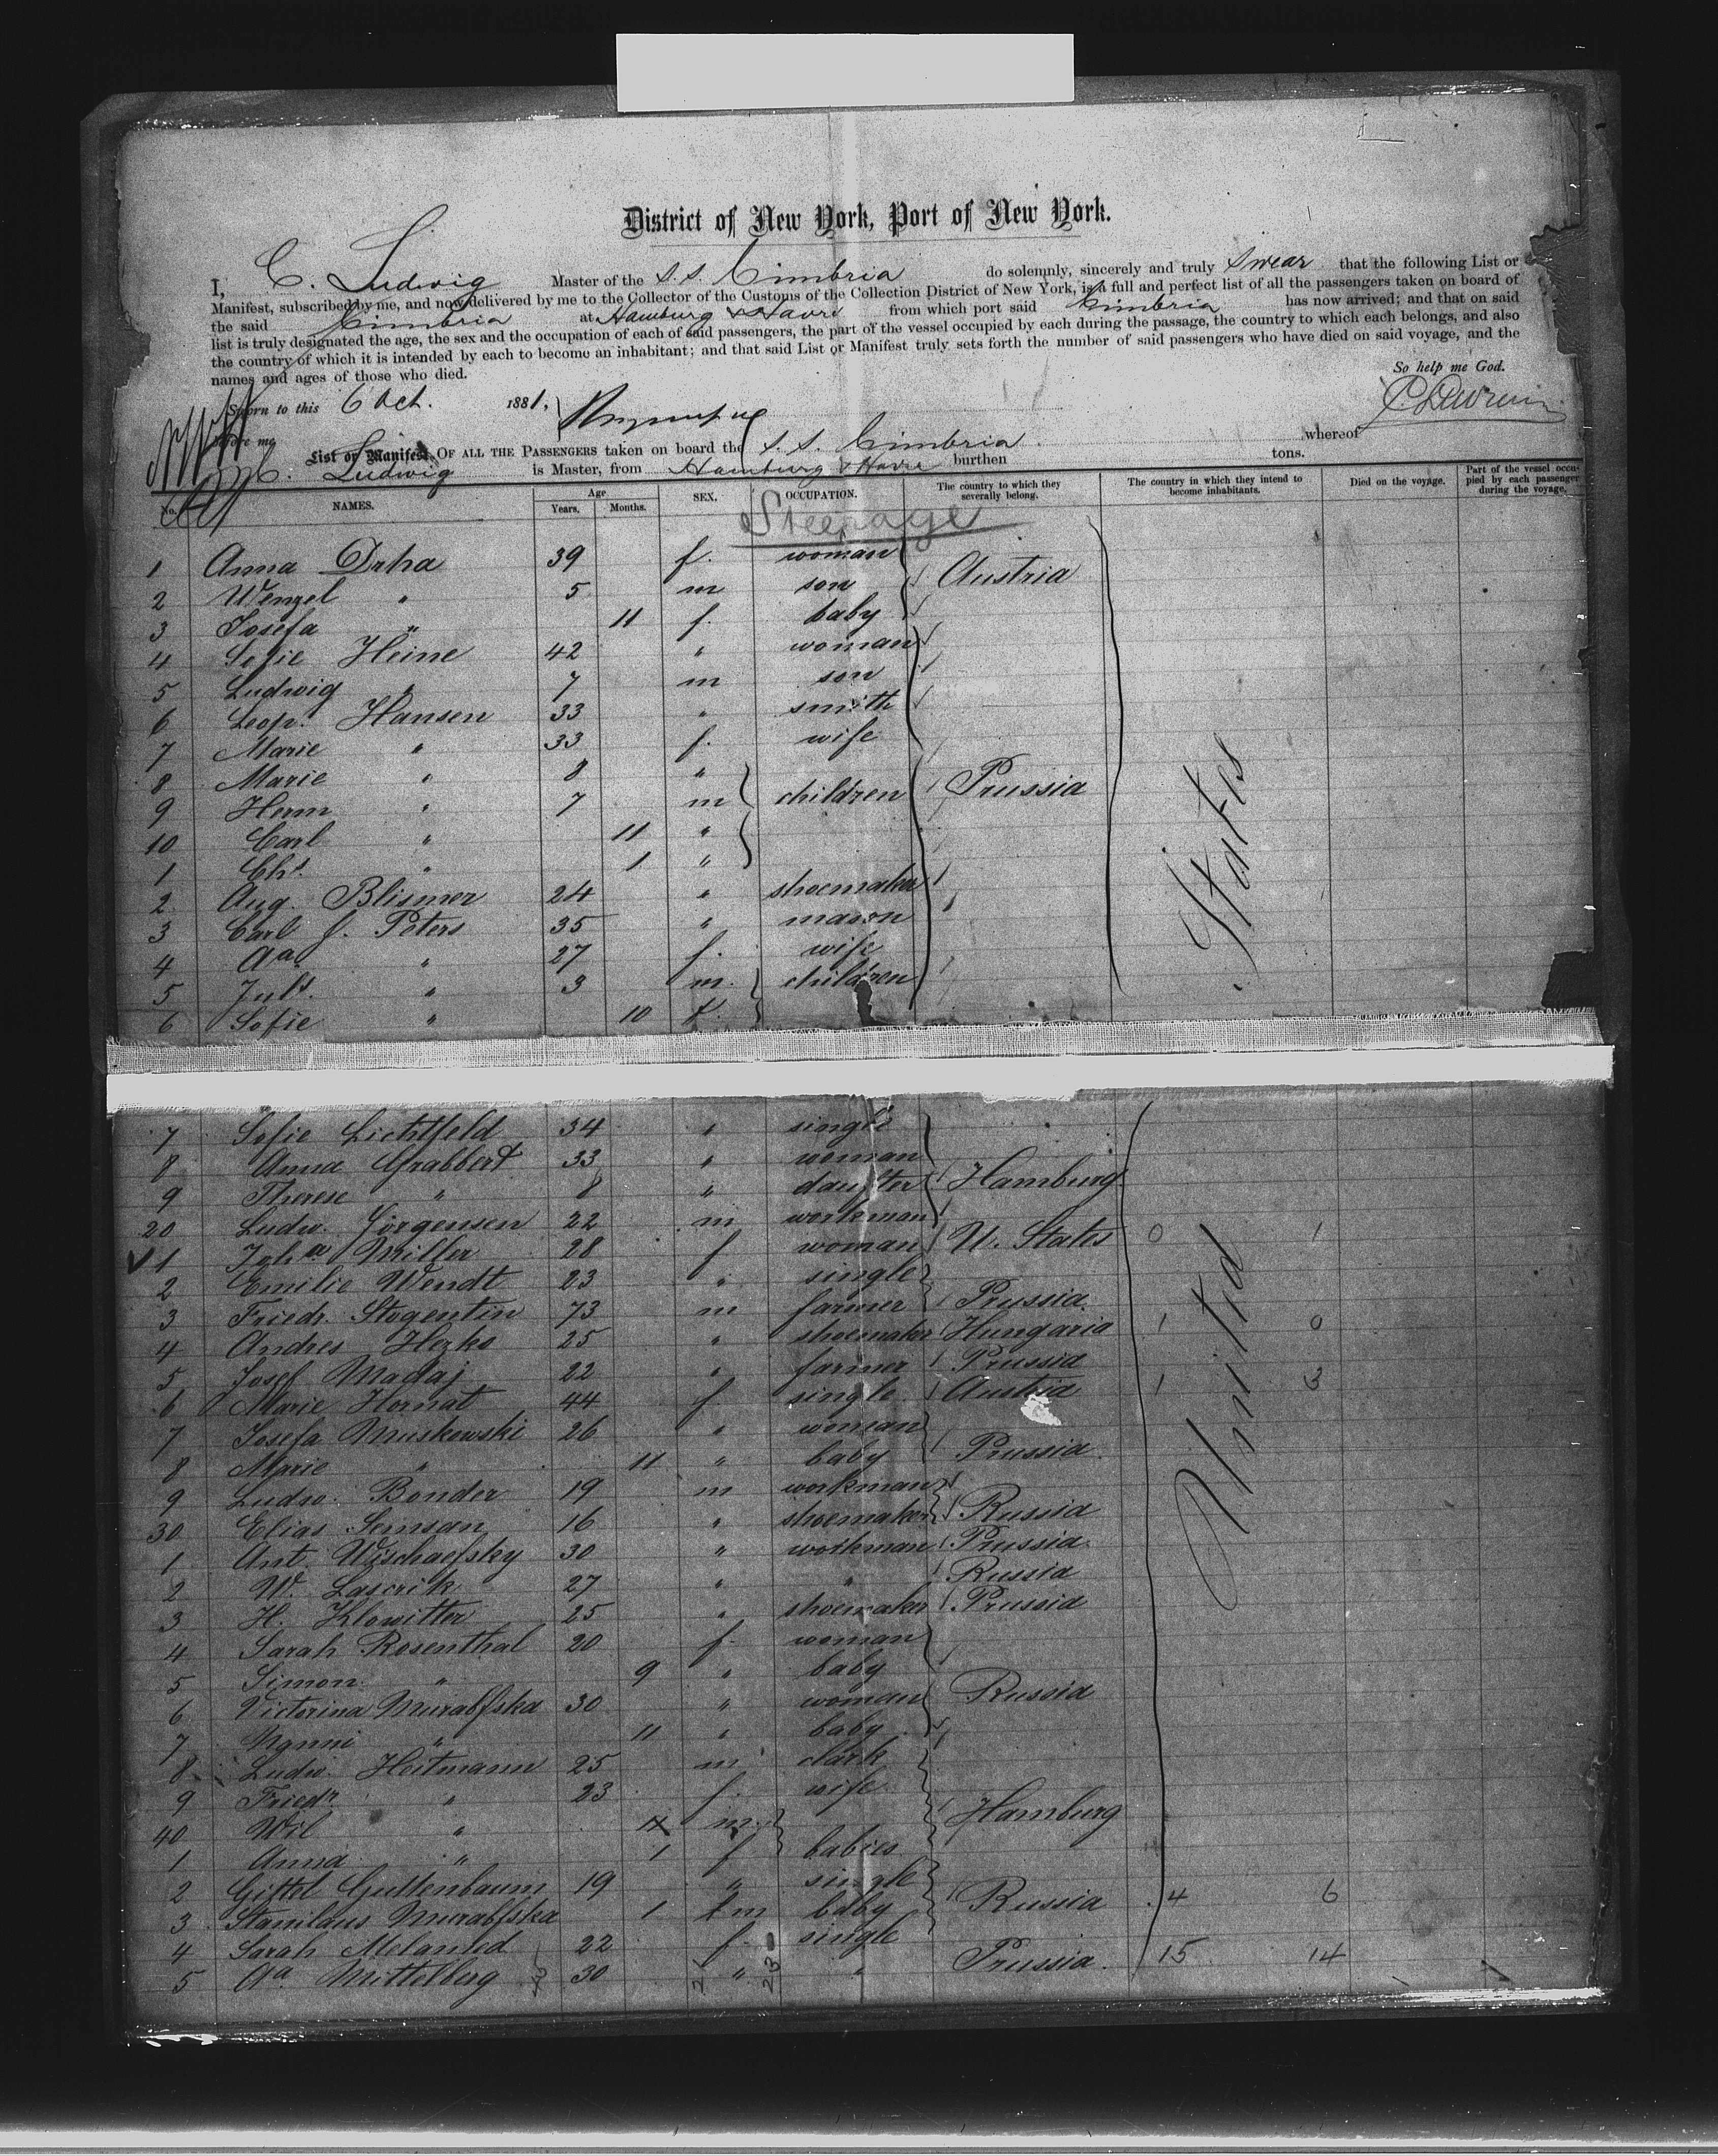 District of New York, Port of New York.
I, C. Ludwig Master of the S. S. Cimbria do solemnly, sincerely and truly swear that the following List or
Manifest, subscribed by me, and now delivered by me to the Collector of the Customs of the Collection District of New York, is a full and perfect list of all the passengers taken on board of
the said Cimbria at Hamburg & Havre from which port said Cimbria has now arrived; and that on said
list is truly designated the age, the sex and the occupation of each of said passengers, the part of the vessel occupied by each during the passage, the country to which each belongs, and also
the country of which it is intended by each to become an inhabitant; and that said List or Manifest truly sets forth the number of said passengers who have died on said voyage, and the
names and ages of those who died.
So help me God.
Sworn to this 6 Oct. 1881,
before me
List or Manifest OF ALL THE PASSENGERS taken on board the S. S. Cimbria whereof
C. Ludwig is Master, from Hamburg & Havre burthen tons.
No. NAMES. Age Years. Months. SEX. OCCUPATION. The country to which they severally belong. The country in which they intend to become inhabitants. Died on the voyage. Part of the vessel occupied by each passenger during the voyage.
Steerage
1 Anna Drha 39 f. woman
2 Wenzel " 5 m son Austria
3 Josefa " 11 f. baby
4 Sofie Heine 42 " woman
5 Ludwig " 7 m son
6 Leop. Hansen 33 " smith
7 Marie " 33 f. wife
8 Marie " 8 "
9 Herm " 7 m children Prussia
10 Carl " 11 "
1 Chs. " 1 "
2 Aug. Blismer 24 " shoemaker
3 Carl J. Peters 35 " mason
4 Aa " 27 f. wife
5 Juls. " 3 m. children
6 Sofie " 10 f.
7 Sofie Lichtfeld 34 " single
8 Anna Grabbert 33 " woman
9 Therese " 8 " daughter Hamburg
20 Ludw. Jörgensen 22 m workman
1 Joha Miller 28 f woman U. States 0 1
2 Emilie Wendt 23 " single
3 Friedr. Stogentin 73 m farmer Prussia
4 Andres Hezko 25 " shoemaker Hungaria 1 0
5 Josef Madaj 22 " farmer Prussia
6 Marie Hornat 44 f single Austria 1 3
7 Josefa Muskowski 26 " woman
8 Marie " 11 " baby Prussia
9 Ludw. Bonder 19 m workman
30 Elias Semsan 16 " shoemaker Russia
1 Ant. Wischaefsky 30 " workman Prussia
2 W. Lascrik 27 " " Russia
3 H. Klowitter 25 " shoemaker Prussia
4 Sarah Rosenthal 20 f. woman
5 Simon " 9 " baby
6 Victorina Murabfska 30 " woman Russia
7 Nanni " 11 " baby
8 Ludw. Heitmann 25 m clark
9 Friedr " 23 f. wife
40 Wil " m Hamburg
1 Anna " 1 f babies
2 Gittel Guttenbaum 19 " single
3 Stanilaus Murabfska 1 m baby Russia 4 6
4 Sarah Melamed 22 f. single
5 Aa Mittelberg 30 " " Prussia 15 14
21 23
United States